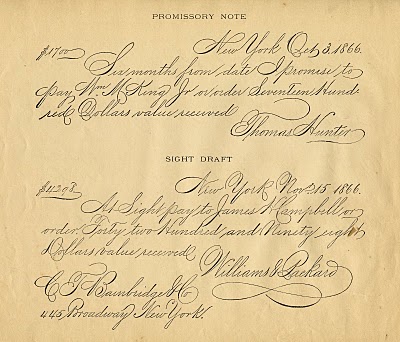 PROMISSORY NOTE
$1700 New York Oct 3. 1866.
Six months from date I promise to
pay Wm M King Jr or order Seventeen Hund
red Dollars value received
Thomas Hunter
SIGHT DRAFT
$4298 New York Nov. 15 1866.
At Sight pay to James W Campbell or
order Forty two Hundred and Ninety eight
Dollars value received
Williams & Packard
C. T. Bainbridge & Co
445, Broadway New York.